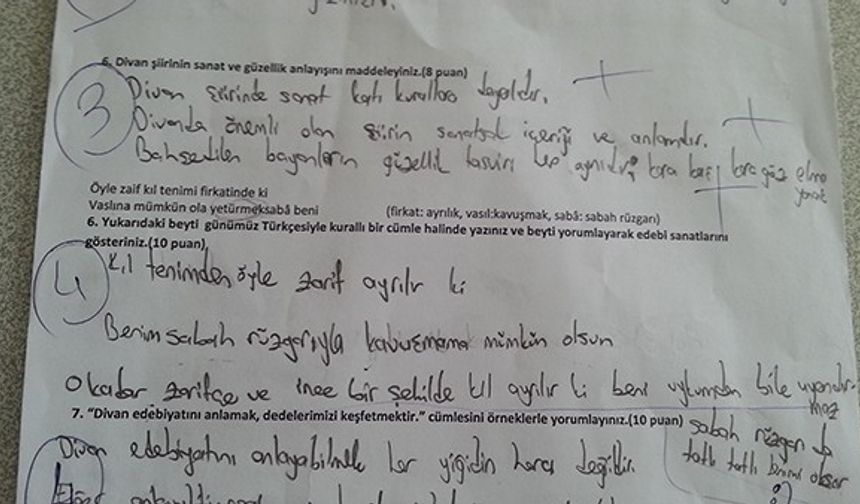 6. Divan şiirinin sanat ve güzellik anlayışını maddeleyiniz.(8 puan)
3
Divan şiirinde sanat katı kurallara dayalıdır.
Divanda önemli olan şiirin sanatsal içeriği ve anlamıdır.
Bahsedilen bayanların güzellik tasviri hep aynıdır; kara kaş, kara göz elma yanak
Öyle zaif kıl tenimi firkatinde ki
Vaslına mümkün ola yetürmeksabâ beni (firkat: ayrılık, vasıl:kavuşmak, sabâ: sabah rüzgarı)
6. Yukarıdaki beyti günümüz Türkçesiyle kurallı bir cümle halinde yazınız ve beyti yorumlayarak edebi sanatlarını
gösteriniz.(10 puan)
4
Kıl tenimden öyle zarif ayrılır ki
Benim sabah rüzgarıyla kavuşmama mümkün olsun
O kadar zarifçe ve ince bir şekilde kıl ayrılır ki beni uykumdan bile uyandırmaz
7. “Divan edebiyatını anlamak, dedelerimizi keşfetmektir.” cümlesini örneklerle yorumlayınız.(10 puan)
sabah rüzgarı da
tatlı tatlı
Divan edebiyatını anlayabilmek her yiğidin harcı değildir.